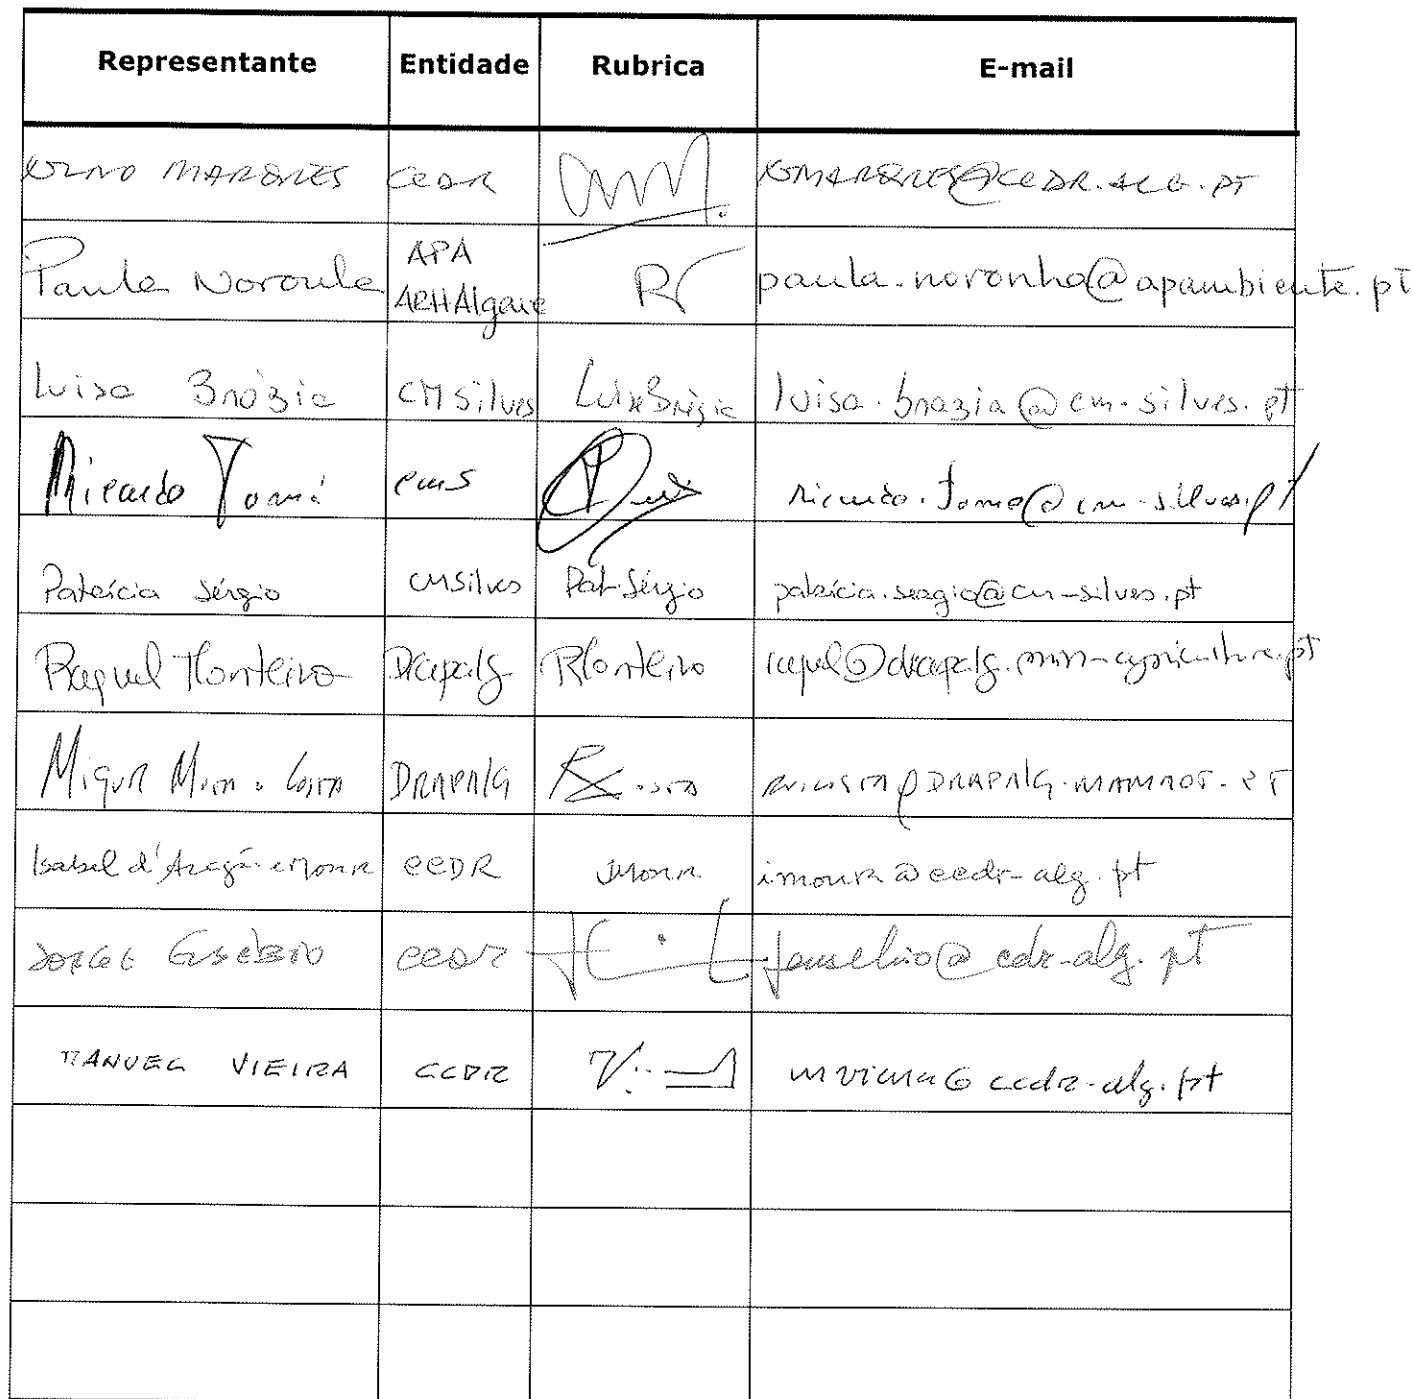 Representante Entidade Rubrica E-mail
NUNO MARQUES CCDR NMARQUES@CCDR.ALG.PT
Paula Noronha APA ARHAlgarve paula.noronha@apambiente.pt
Luisa Brázia CMSilves Luisa Brázia luisa.brazia@cm-silves.pt
Ricardo Tomé CMS ricardo.tome@cm-silves.pt
Patrícia Sérgio CMSilves Pat Sérgio patrícia.sergio@cm-silves.pt
Raquel Monteiro Drapalg RMonteiro raquel@drapalg.min-agricultura.pt
Miguel DRAPALG DRAPALG.MAMAOT.PT
Isabel d'Aragão e Moura CCDR IMoura imoura@ccdr-alg.pt
JORGE EUSÉBIO CCDR jeusebio@ccdr-alg.pt
MANUEL VIEIRA CCDR mvieira@ccdr-alg.pt